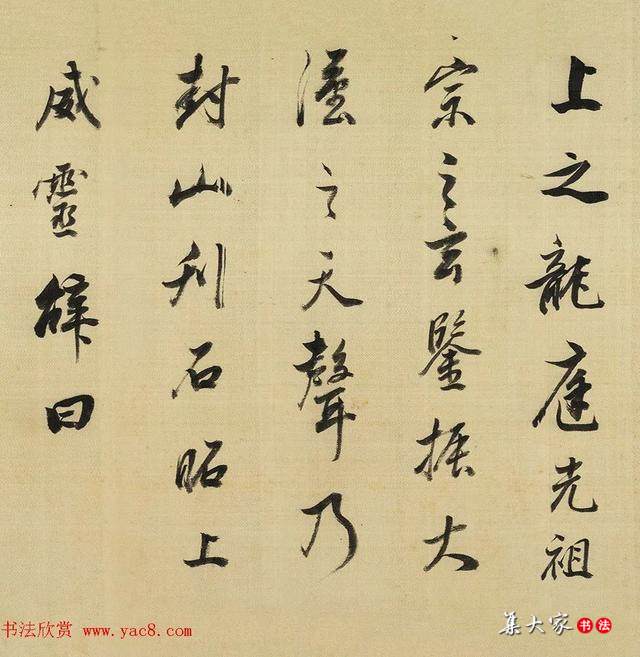 上之龍庭光祖
宗之玄鑒振大
漢之天聲乃
封山刊石昭上
威靈辭曰
书法欣赏 www.yac8.com
集大家书法